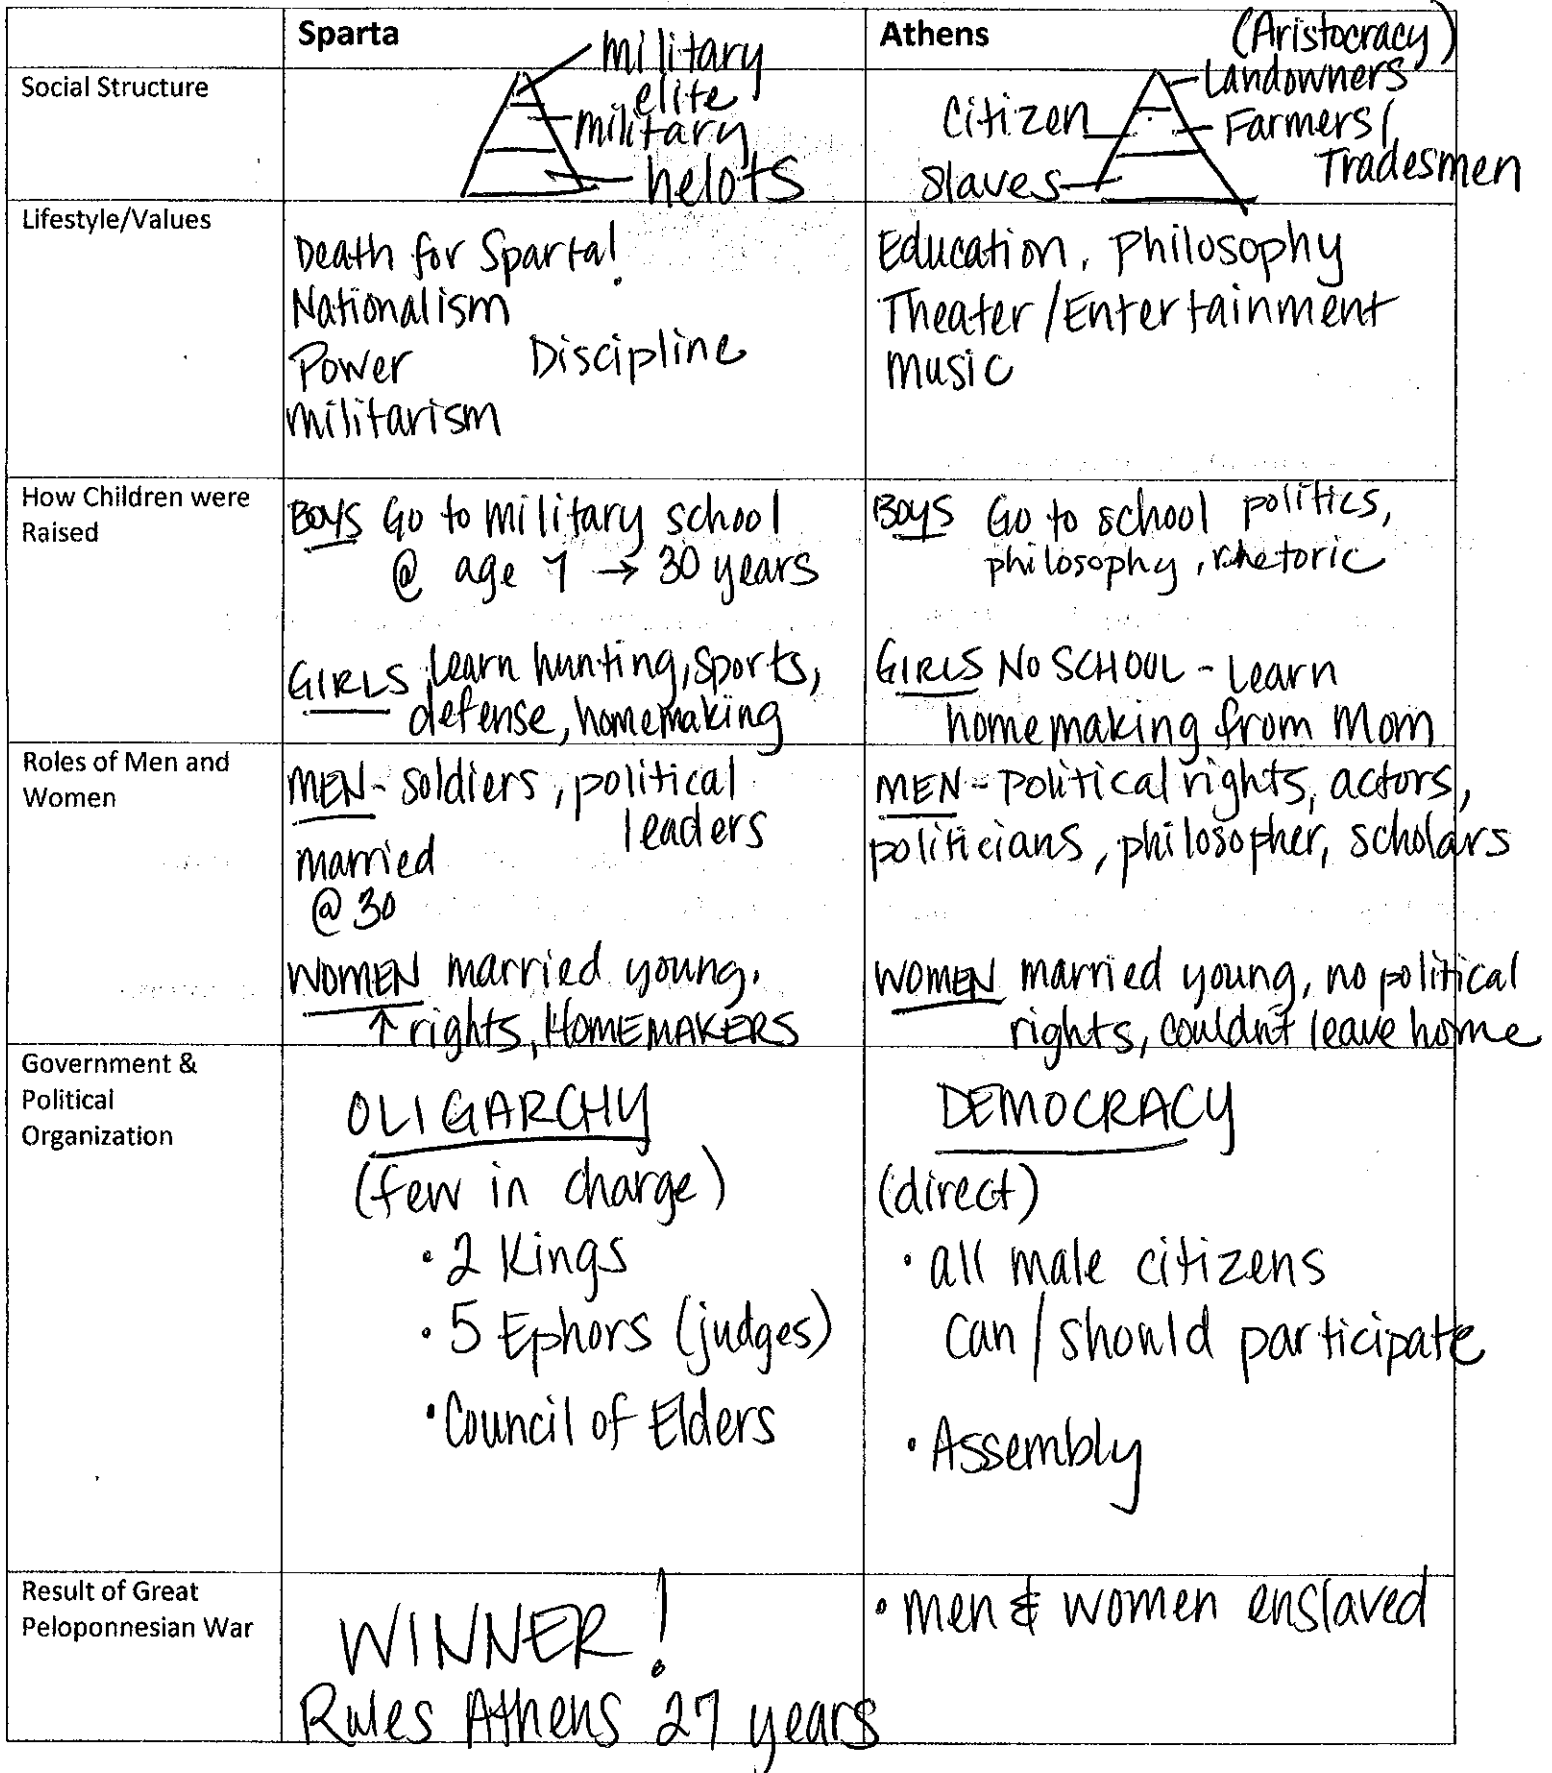 Sparta
Athens
(Aristocracy)
Social Structure
military
elite
military
helots
Landowners
Citizen
Farmers/
Tradesmen
Slaves
Lifestyle/Values
Death for Sparta!
Nationalism
Power
Discipline
militarism
Education, Philosophy
Theater/Entertainment
music
How Children were
Raised
BOYS Go to military school
@ age 7 → 30 years
GIRLS learn hunting, sports,
defense, homemaking
BOYS Go to school politics,
philosophy, rhetoric
GIRLS NO SCHOOL - learn
homemaking from Mom
Roles of Men and
Women
MEN - soldiers, political
leaders
married
@ 30
WOMEN married young,
↑ rights, HOMEMAKERS
MEN - political rights, actors,
politicians, philosopher, scholars
WOMEN married young, no political
rights, couldn't leave home
Government &
Political
Organization
OLIGARCHY
(few in charge)
• 2 Kings
• 5 Ephors (judges)
• Council of Elders
DEMOCRACY
(direct)
• all male citizens
can/should participate
• Assembly
Result of Great
Peloponnesian War
WINNER!
Rules Athens 27 years
• men & women enslaved